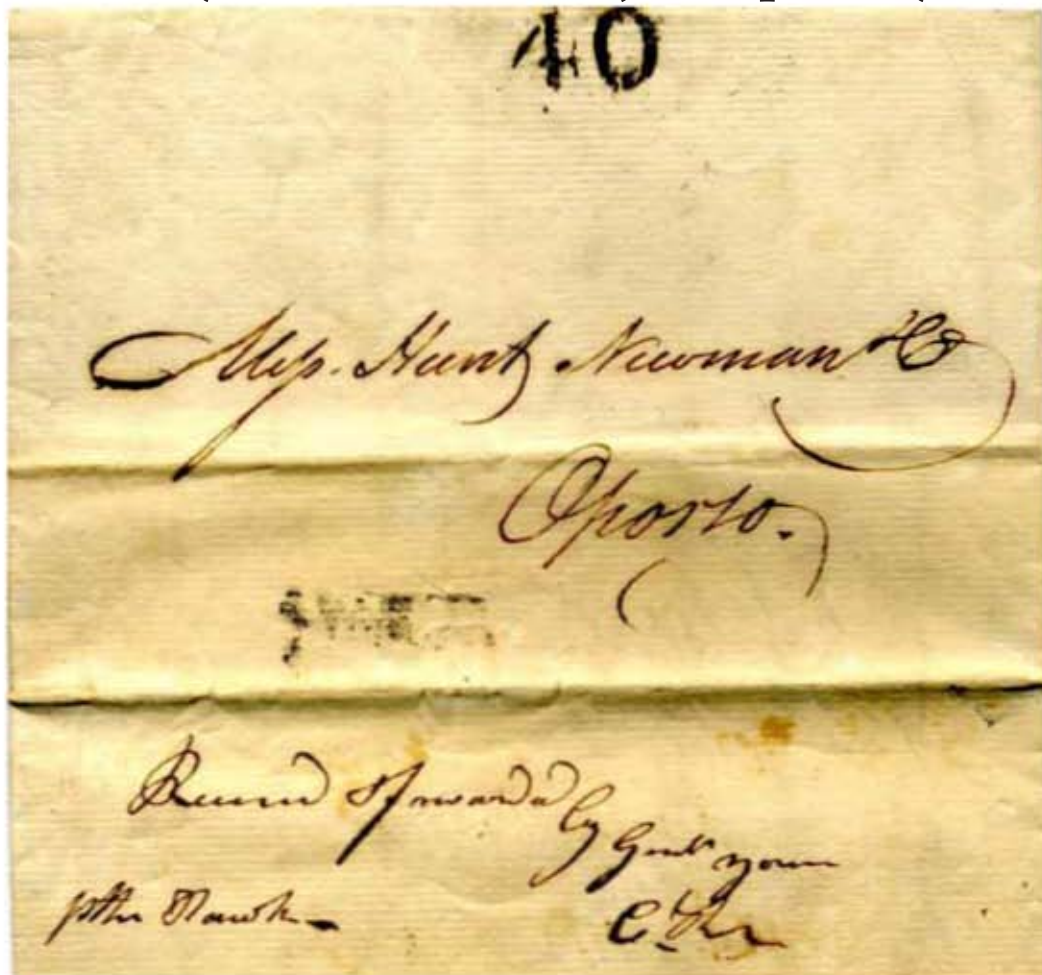 40
Mess. Hunt Newman & Co
Oporto.
Received & forwarded
by Gentn yours
p the Hawk